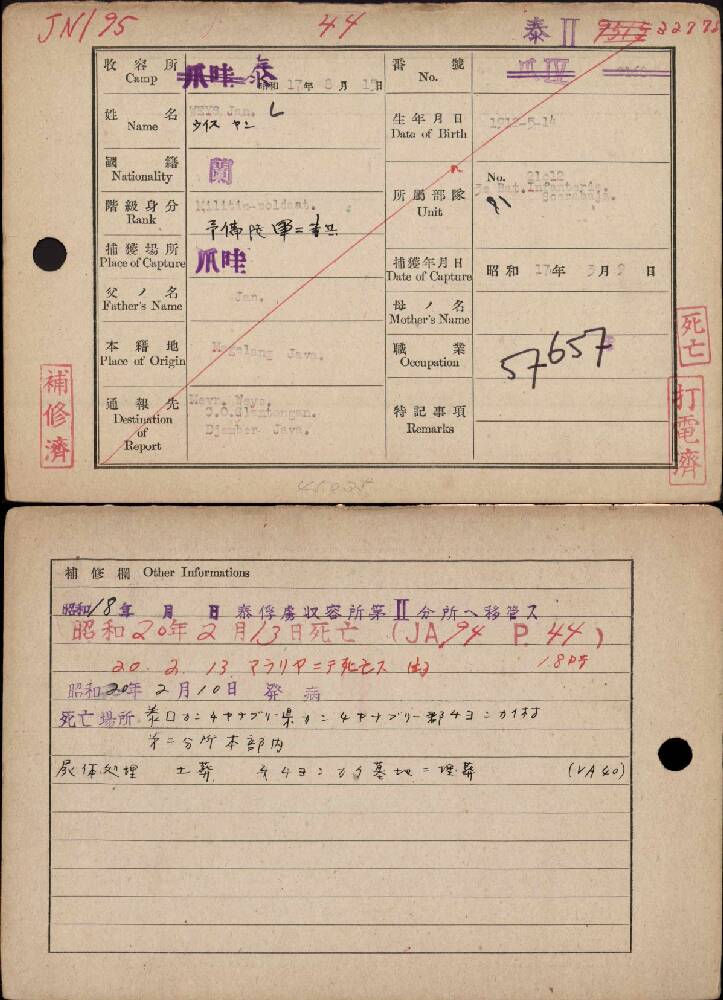 JN195
44
泰 II
22778
收容所
Camp
爪哇 泰
昭和 17年 8月 15日
番號
No.
爪 IV
姓名
Name
WEYS, Jan. L
ウイス ヤン
生年月日
Date of Birth
1912-5-14
國籍
Nationality
蘭
所屬部隊
Unit
No. 21012
3e Bat. Infanterie.
Soerabaja.
階級身分
Rank
Militie-soldaat.
捕獲場所
Place of Capture
爪哇
捕獲年月日
Date of Capture
昭和 17年 3月 9日
父ノ名
Father's Name
Jan.
母ノ名
Mother's Name
本籍地
Place of Origin
Magelang Java.
職業
Occupation
57657
通報先
Destination
of
Report
Mevr. Weys,
C.O. Slantongan.
Djember Java.
特記事項
Remarks
補修濟
死亡
打電濟
補修欄 Other Informations
昭和18年 月 日 泰俘虜収容所第II分所へ移管ス
昭和20年2月13日死亡 (JA,94 P.44)
20.2.13 マラリヤニテ死亡ス
昭和20年2月10日 発病
死亡場所
第二分所本部内
屍体処理 土葬 墓地ニ埋葬